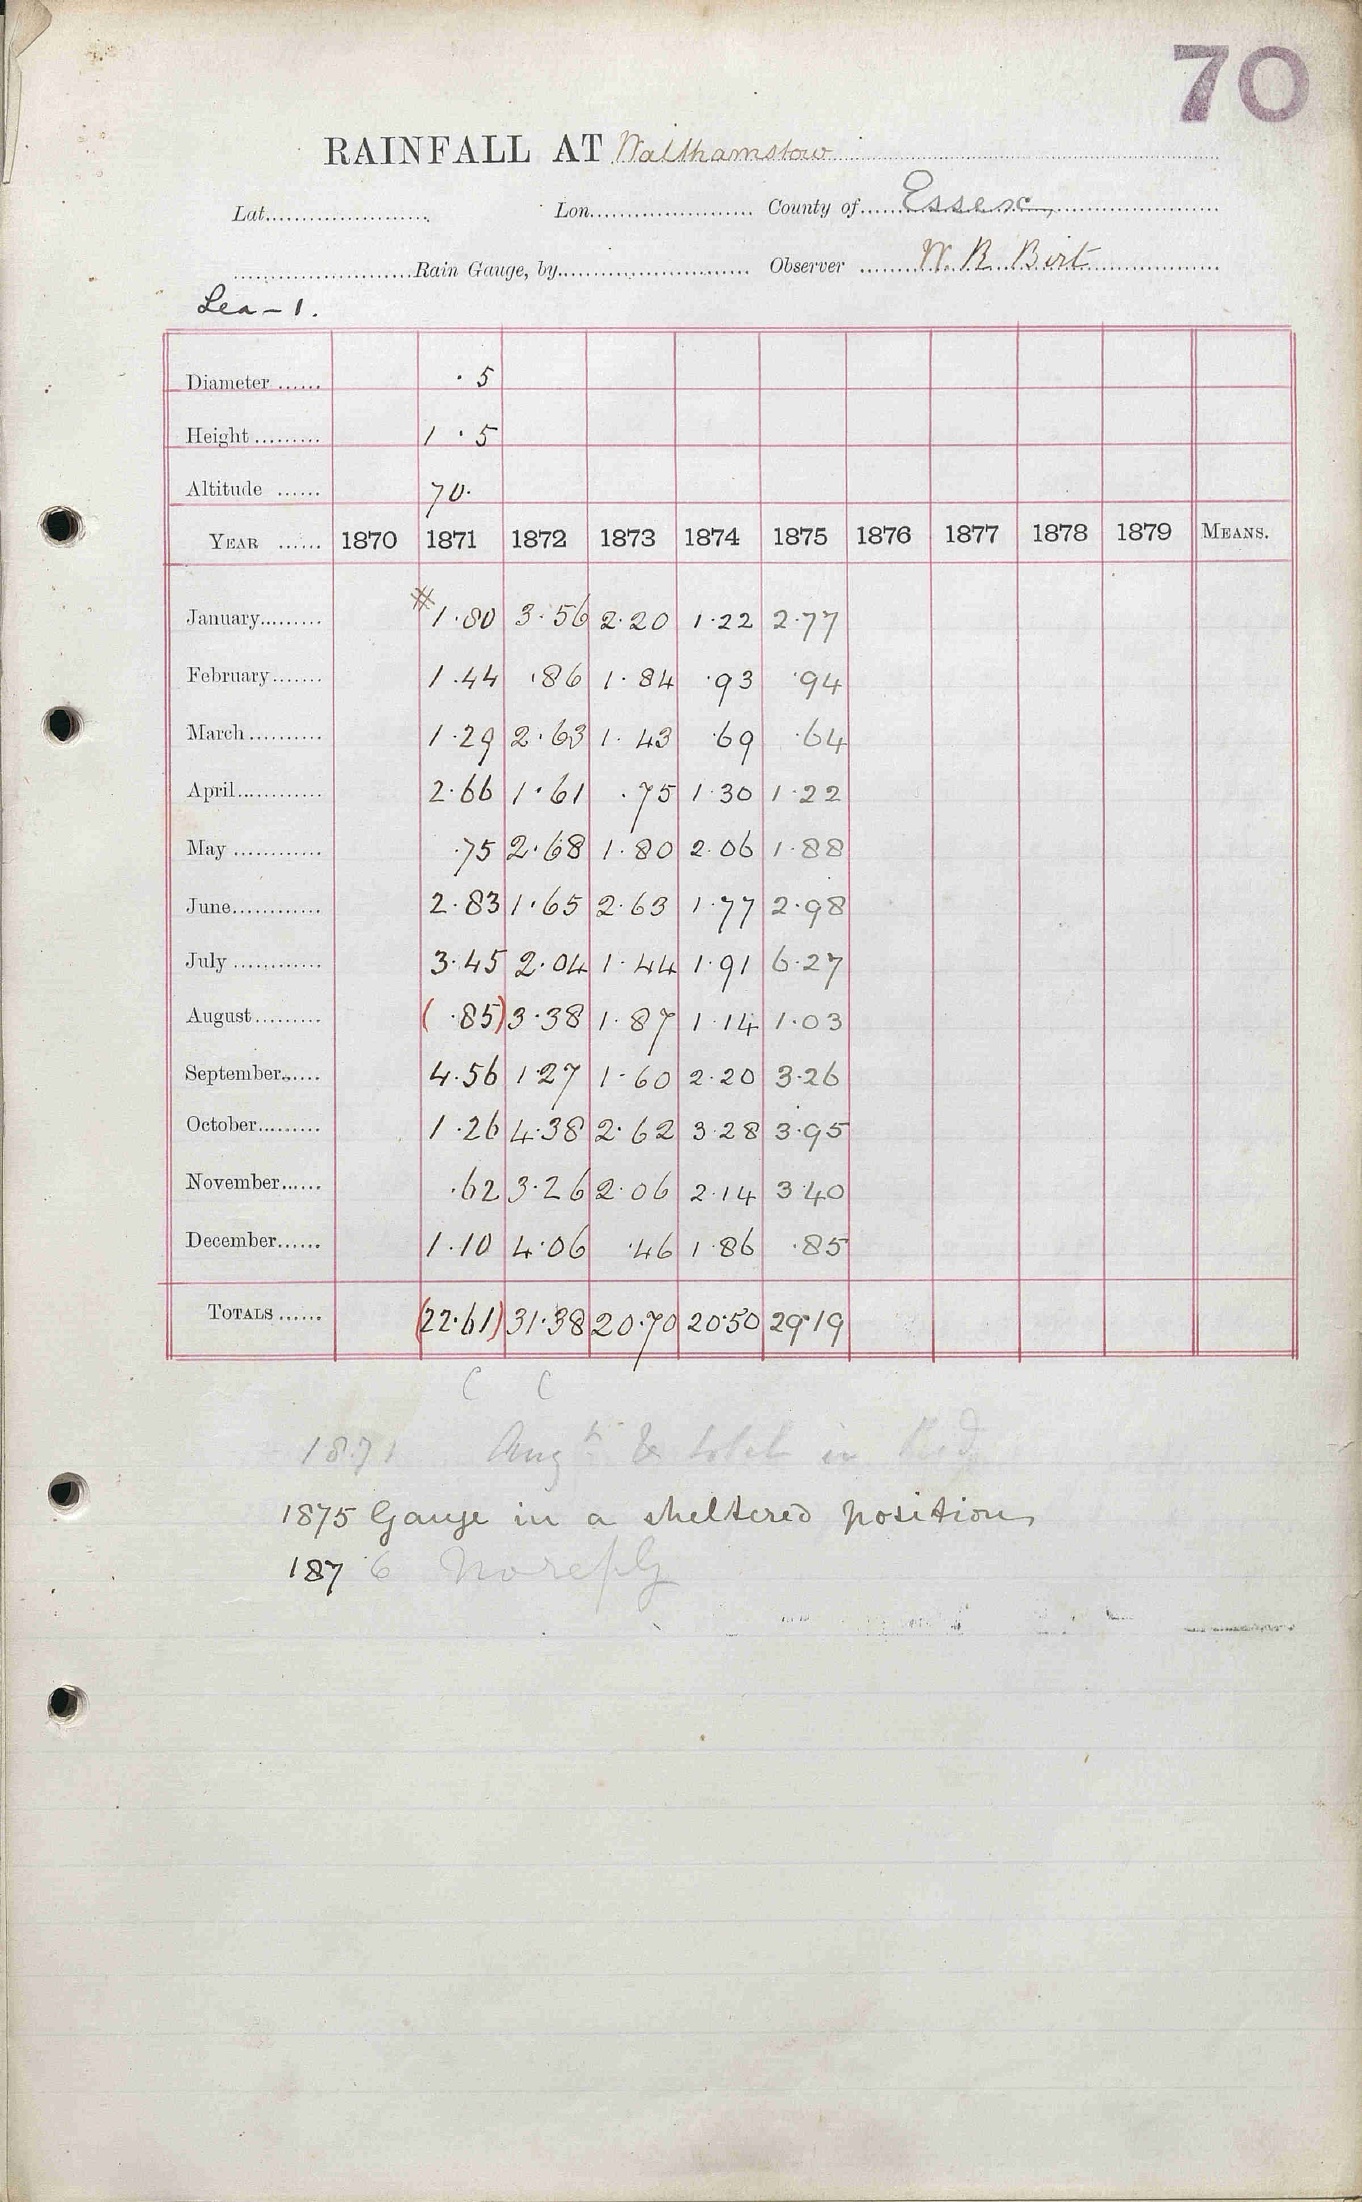 70
RAINFALL AT Walthamstow
Lat. Lon. County of Essex
Rain Gauge, by Observer W. R. Birt
Lea - 1.
Diameter ·5
Height 1·5
Altitude 70.
YEAR 1870 1871 1872 1873 1874 1875 1876 1877 1878 1879 MEANS.
January 1·80 3·56 2·20 1·22 2·77
February 1·44 ·86 1·84 ·93 ·94
March 1·29 2·63 1·43 ·69 ·64
April 2·66 1·61 ·75 1·30 1·22
May ·75 2·68 1·80 2·06 1·88
June 2·83 1·65 2·63 1·77 2·98
July 3·45 2·04 1·44 1·91 6·27
August (·85) 3·38 1·87 1·14 1·03
September 4·56 1·27 1·60 2·20 3·26
October 1·26 4·38 2·62 3·28 3·95
November ·62 3·26 2·06 2·14 3·40
December 1·10 4·06 ·46 1·86 ·85
TOTALS (22·61) 31·38 20·70 20·50 29·19
C C
1871 Augt & total in Red
1875 Gauge in a sheltered position
1876 No reply